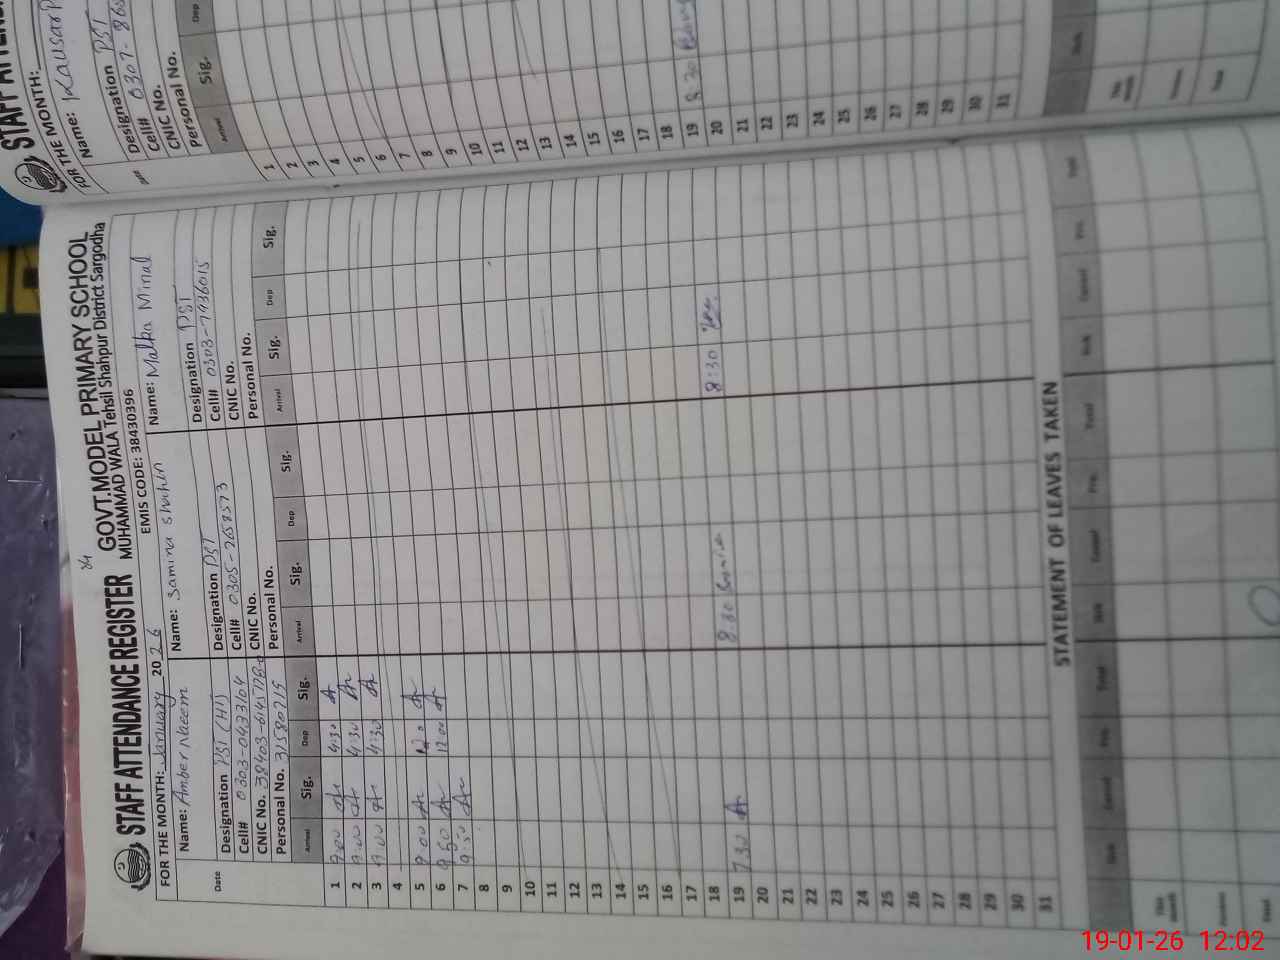 STAFF ATTENDANCE REGISTER
GOVT.MODEL PRIMARY SCHOOL
MUHAMMAD WALA Tehsil Shahpur District Sargodha
FOR THE MONTH: January 2026
EMIS CODE: 38430396
Name: Amber Naeem
Designation PST (HT)
Cell# 0303-0433164
CNIC No.
Personal No. 31580215
Name: Samina Shahin
Designation PST
Cell# 0305-7658573
CNIC No.
Personal No.
Name: Malka Minal
Designation PST
Cell# 0303-7936015
CNIC No.
Personal No.
Date Arrival Sig. Dep Sig. Arrival Sig. Dep Sig. Arrival Sig. Dep Sig.
1 9:00 4:30
2 9:00 4:30
3 9:00 4:30
4
5 9:00 12:00
6 9:50 12:00
7 9:50
8
9
10
11
12
13
14
15
16
17
18
19 7:30 8:30 8:30
20
21
22
23
24
25
26
27
28
29
30
31
STATEMENT OF LEAVES TAKEN
Sick Casual Pri. Total Sick Casual Pri. Total Sick Casual Pri. Total
This Month
Previous
Total
STAFF ATTEN
FOR THE MONTH:
Name: Kausar P
Designation PST
Cell# 0307-860
CNIC No.
Personal No.
Date Arrival Sig. Dep
1
2
3
4
5
6
7
8
9
10
11
12
13
14
15
16
17
18
19 8:30
20
21
22
23
24
25
26
27
28
29
30
31
Sick
This Month
Previous
Total
19-01-26 12:02